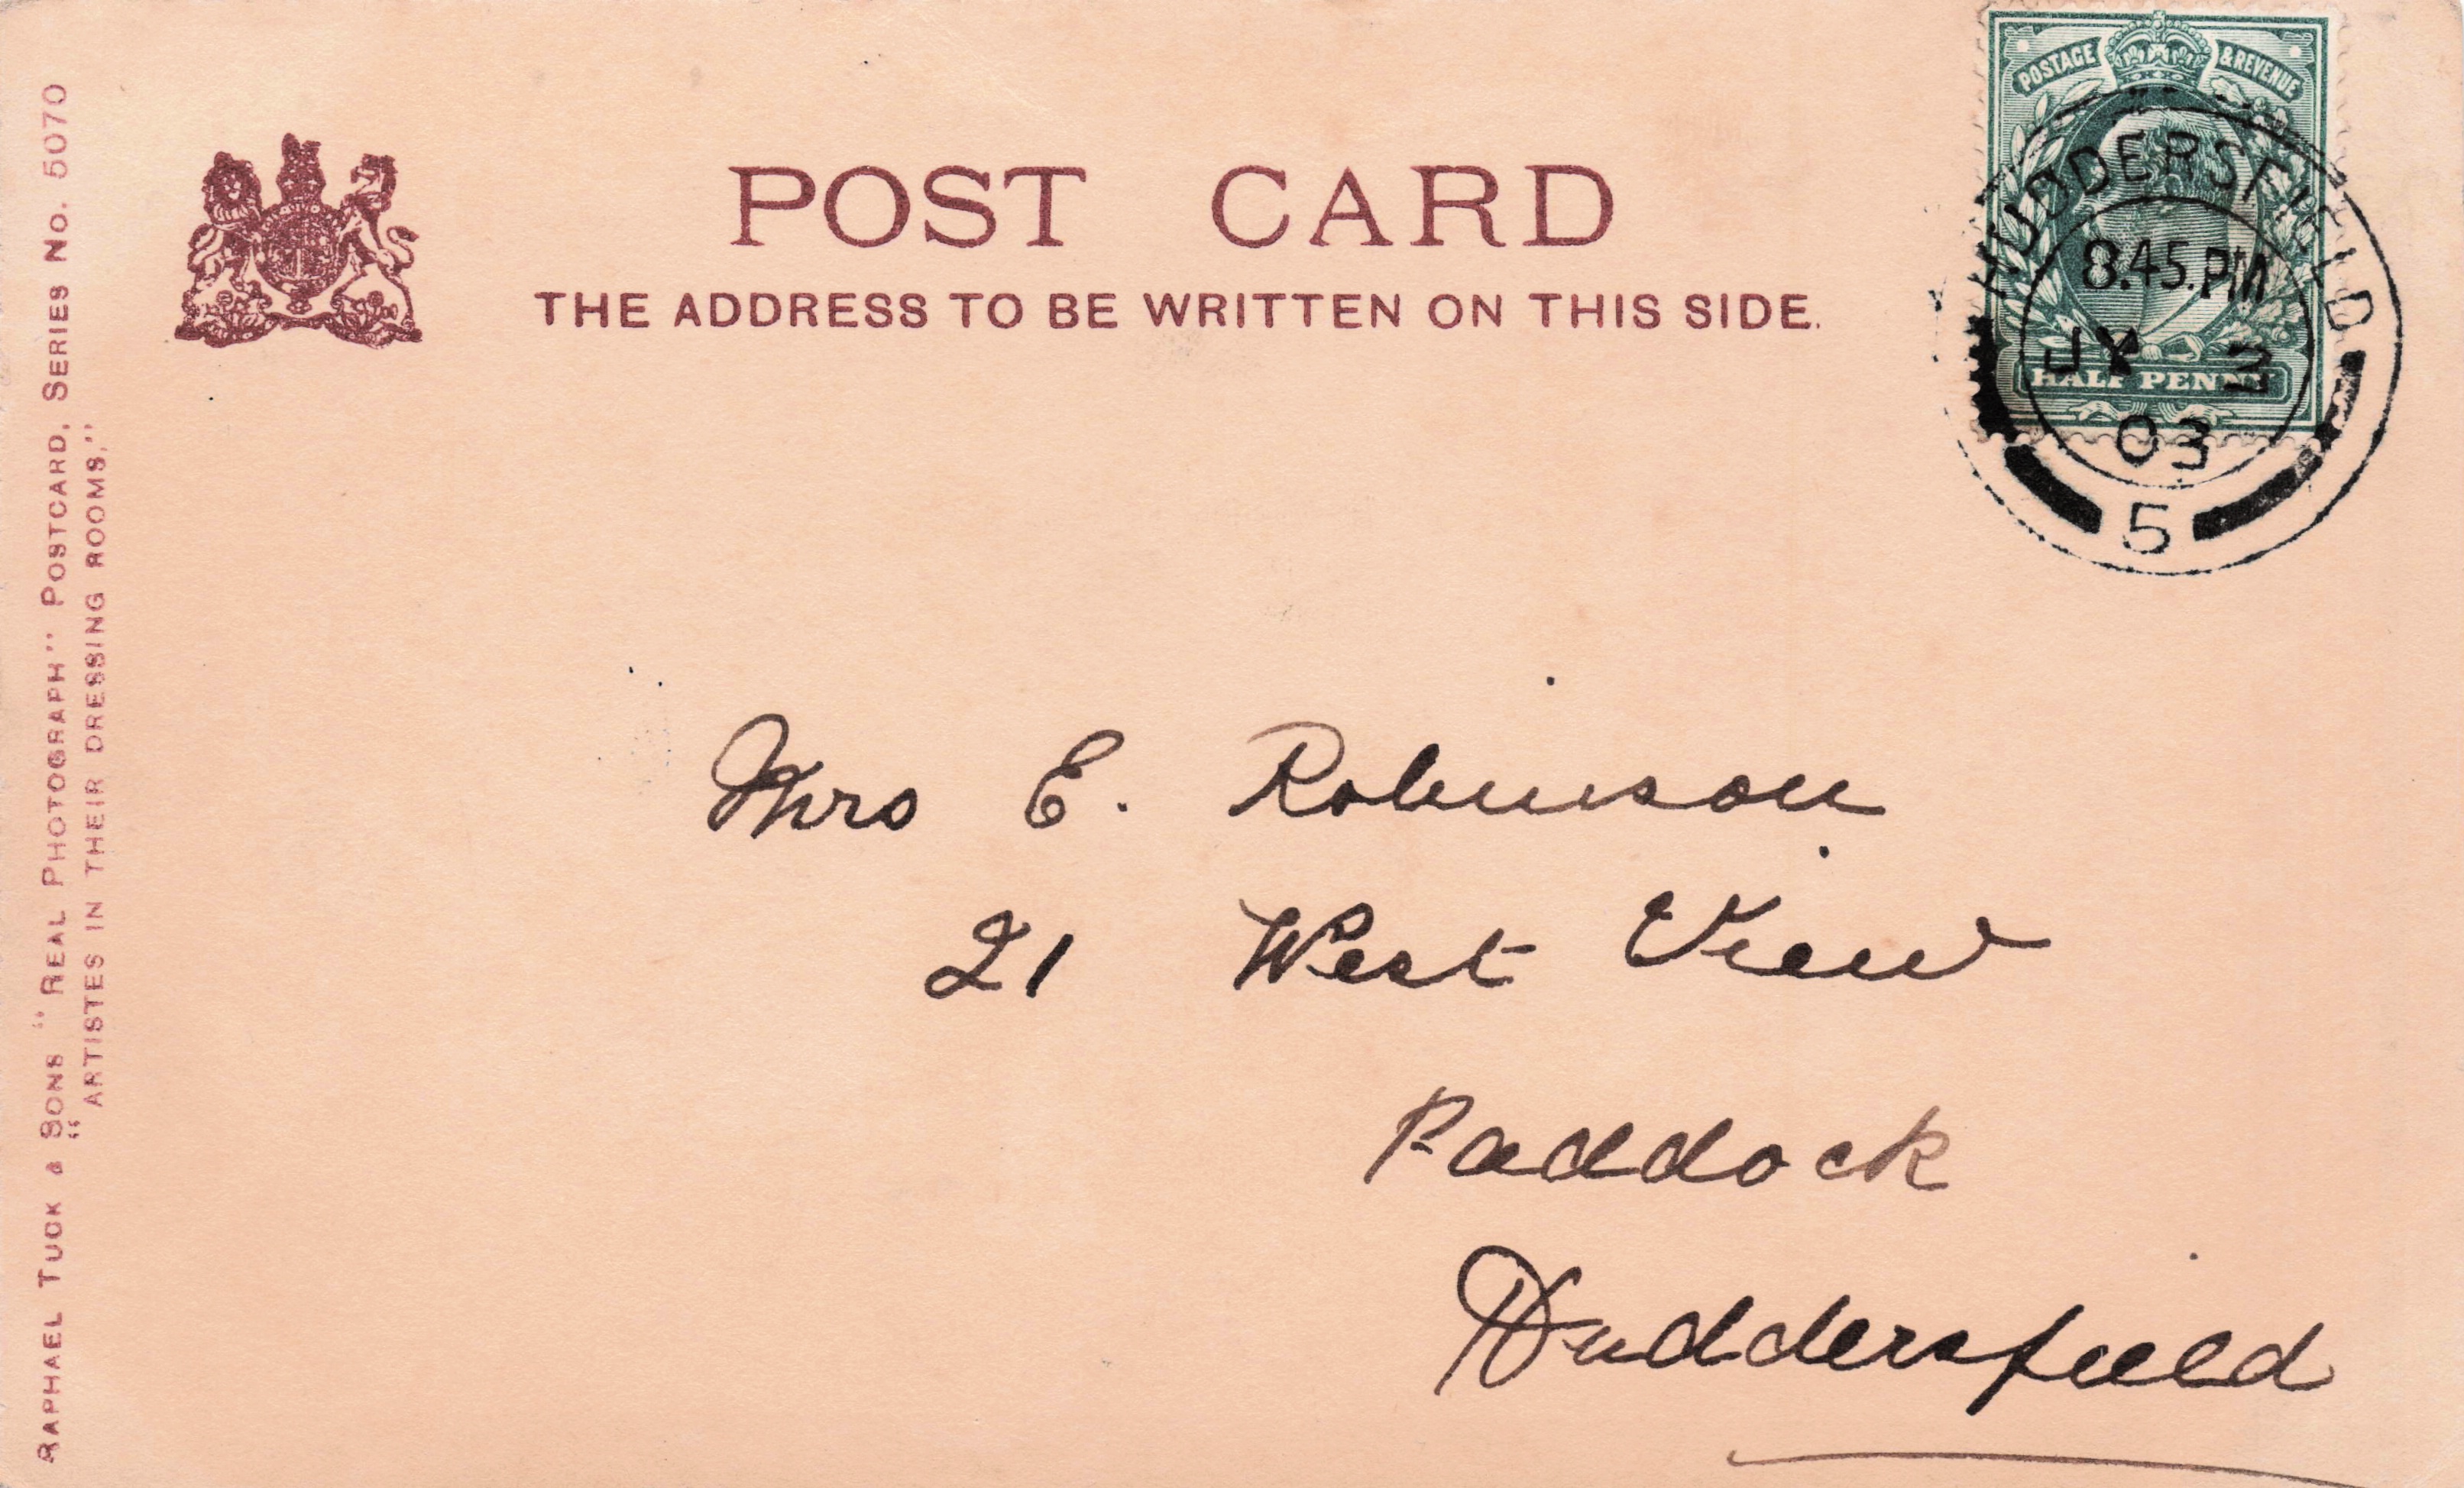 POST CARD
THE ADDRESS TO BE WRITTEN ON THIS SIDE.
RAPHAEL TUCK & SONS "REAL PHOTOGRAPH" POSTCARD, SERIES No. 5070
"ARTISTES IN THEIR DRESSING ROOMS."
POSTAGE & REVENUE
HALF PENNY
HUDDERSFIELD
8.45.PM
JY 3
03
5
Mrs E. Robinson
21 West View
Paddock
Huddersfield